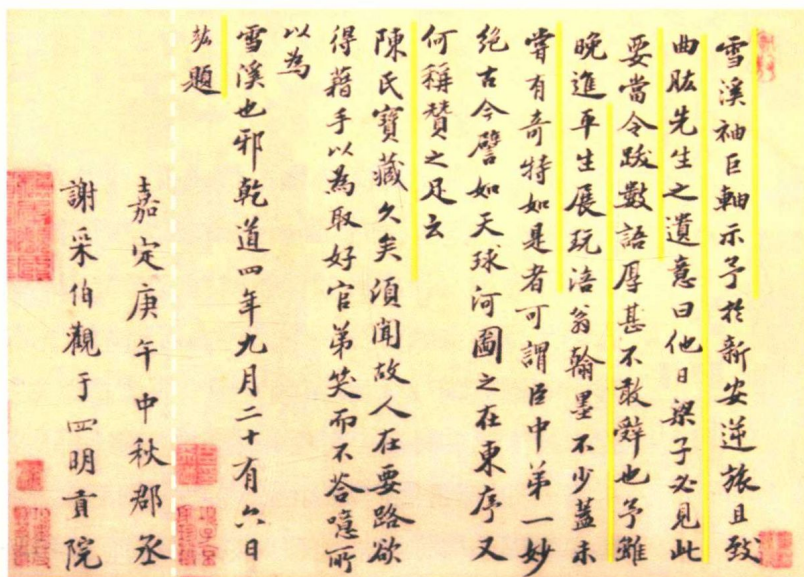 雪溪袖巨軸示予於新安逆旅且致
曲肱先生之遺意曰他日梁子必見此
要當令跋數語厚甚不敢辭也予雖
晚進平生展玩涪翁翰墨不少蓋未
嘗有奇特如是者可謂臣中第一妙
絕古今譬如天球河圖之在東序又
何稱贊之足云
陳氏寶藏久矣須聞故人在要路欲
得藉手以為取好官第笑而不答噫所
以為
雪溪也邪乾道四年九月二十有六日
題
嘉定庚午中秋郡丞
謝采伯觀于四明貢院